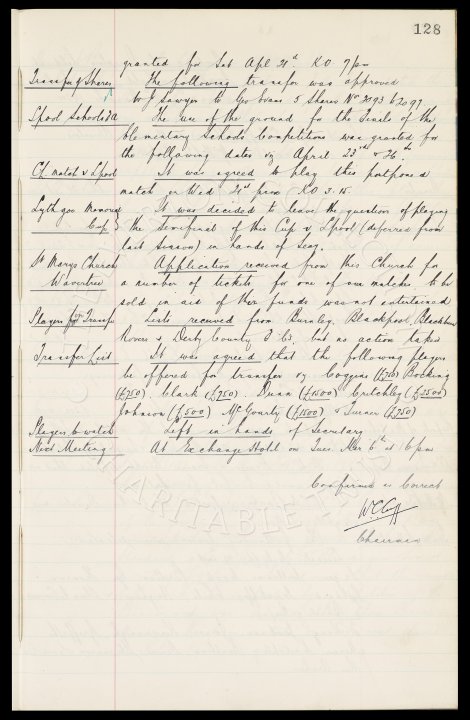 128
granted for Sat Apl 21st KO 7pm
Transfer of Shares The following transfer was approved
to J Sawyer to Geo Evans 5 Shares Nos 2093 to 2097
Lpool Schools FA The use of the ground for the Finals of the
Elementary Schools Competition was granted for
the following dates viz April 23rd & 26th
CL match v Lpool It was agreed to play this postponed
match on Wed 21st prox KO 3.15
Lythgoe Memorial It was decided to leave the question of playing
Cup the Semifinal of this Cup v Lpool (deferred from
last season) in hands of Secy.
St Marys Church Application received from this Church for
Wavertree a number of tickets for one of our matches to be
sold in aid of their funds was not entertained
Players for Transfer Lists received from Burnley, Blackpool, Blackburn
Rovers & Derby County F Cs. but no action taken
Transfer List It was agreed that the following players
be offered for transfer viz Coggins Bocking
(£750) Clark (£250) Dunn (£1500) Critchley (£2500)
Johnson (£500) McGourty (£1500) & Turner (£750)
Players to watch Left in hands of Secretary
Next Meeting At Exchange Hotel on Tues Mar 6th at 6pm
Confirmed as Correct
W C Cuff
Chairman
CHARITABLE TRUST